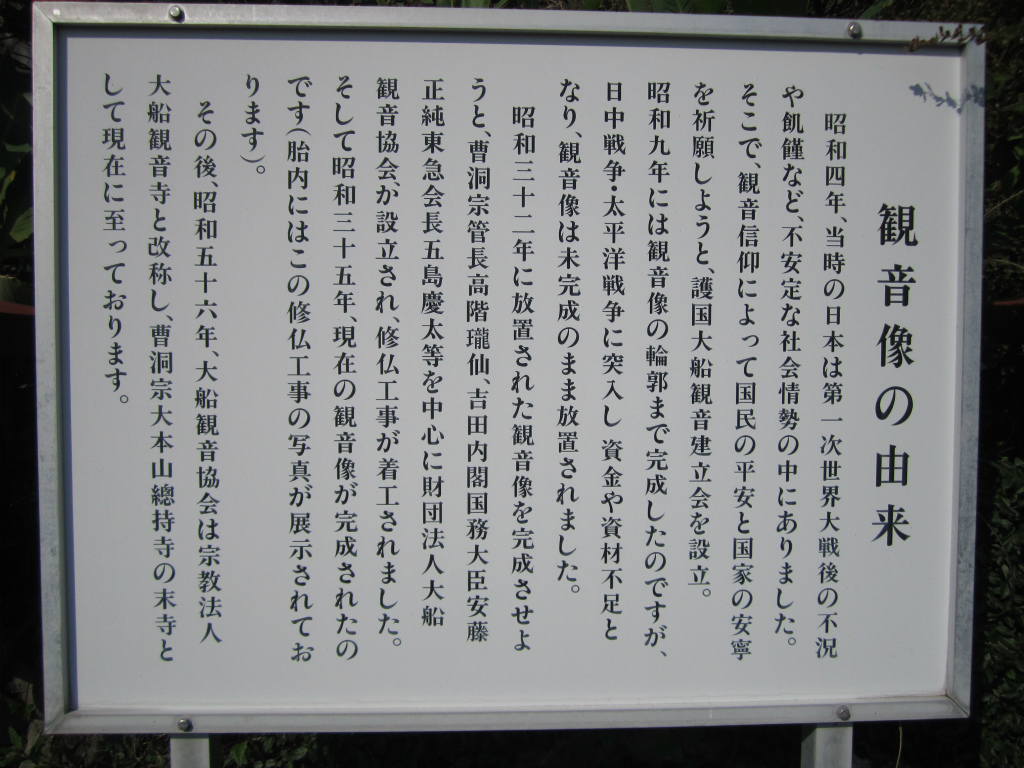 観音像の由来
昭和四年、当時の日本は第一次世界大戦後の不況
や飢饉など、不安定な社会情勢の中にありました。
そこで、観音信仰によって国民の平安と国家の安寧
を祈願しようと、護国大船観音建立会を設立。
昭和九年には観音像の輪郭まで完成したのですが、
日中戦争・太平洋戦争に突入し 資金や資材不足と
なり、観音像は未完成のまま放置されました。
昭和三十二年に放置された観音像を完成させよ
うと、曹洞宗管長高階瓏仙、吉田内閣国務大臣安藤
正純東急会長五島慶太等を中心に財団法人大船
観音協会が設立され、修仏工事が着工されました。
そして昭和三十五年、現在の観音像が完成されたの
です(胎内にはこの修仏工事の写真が展示されてお
ります)。
その後、昭和五十六年、大船観音協会は宗教法人
大船観音寺と改称し、曹洞宗大本山總持寺の末寺と
して現在に至っております。